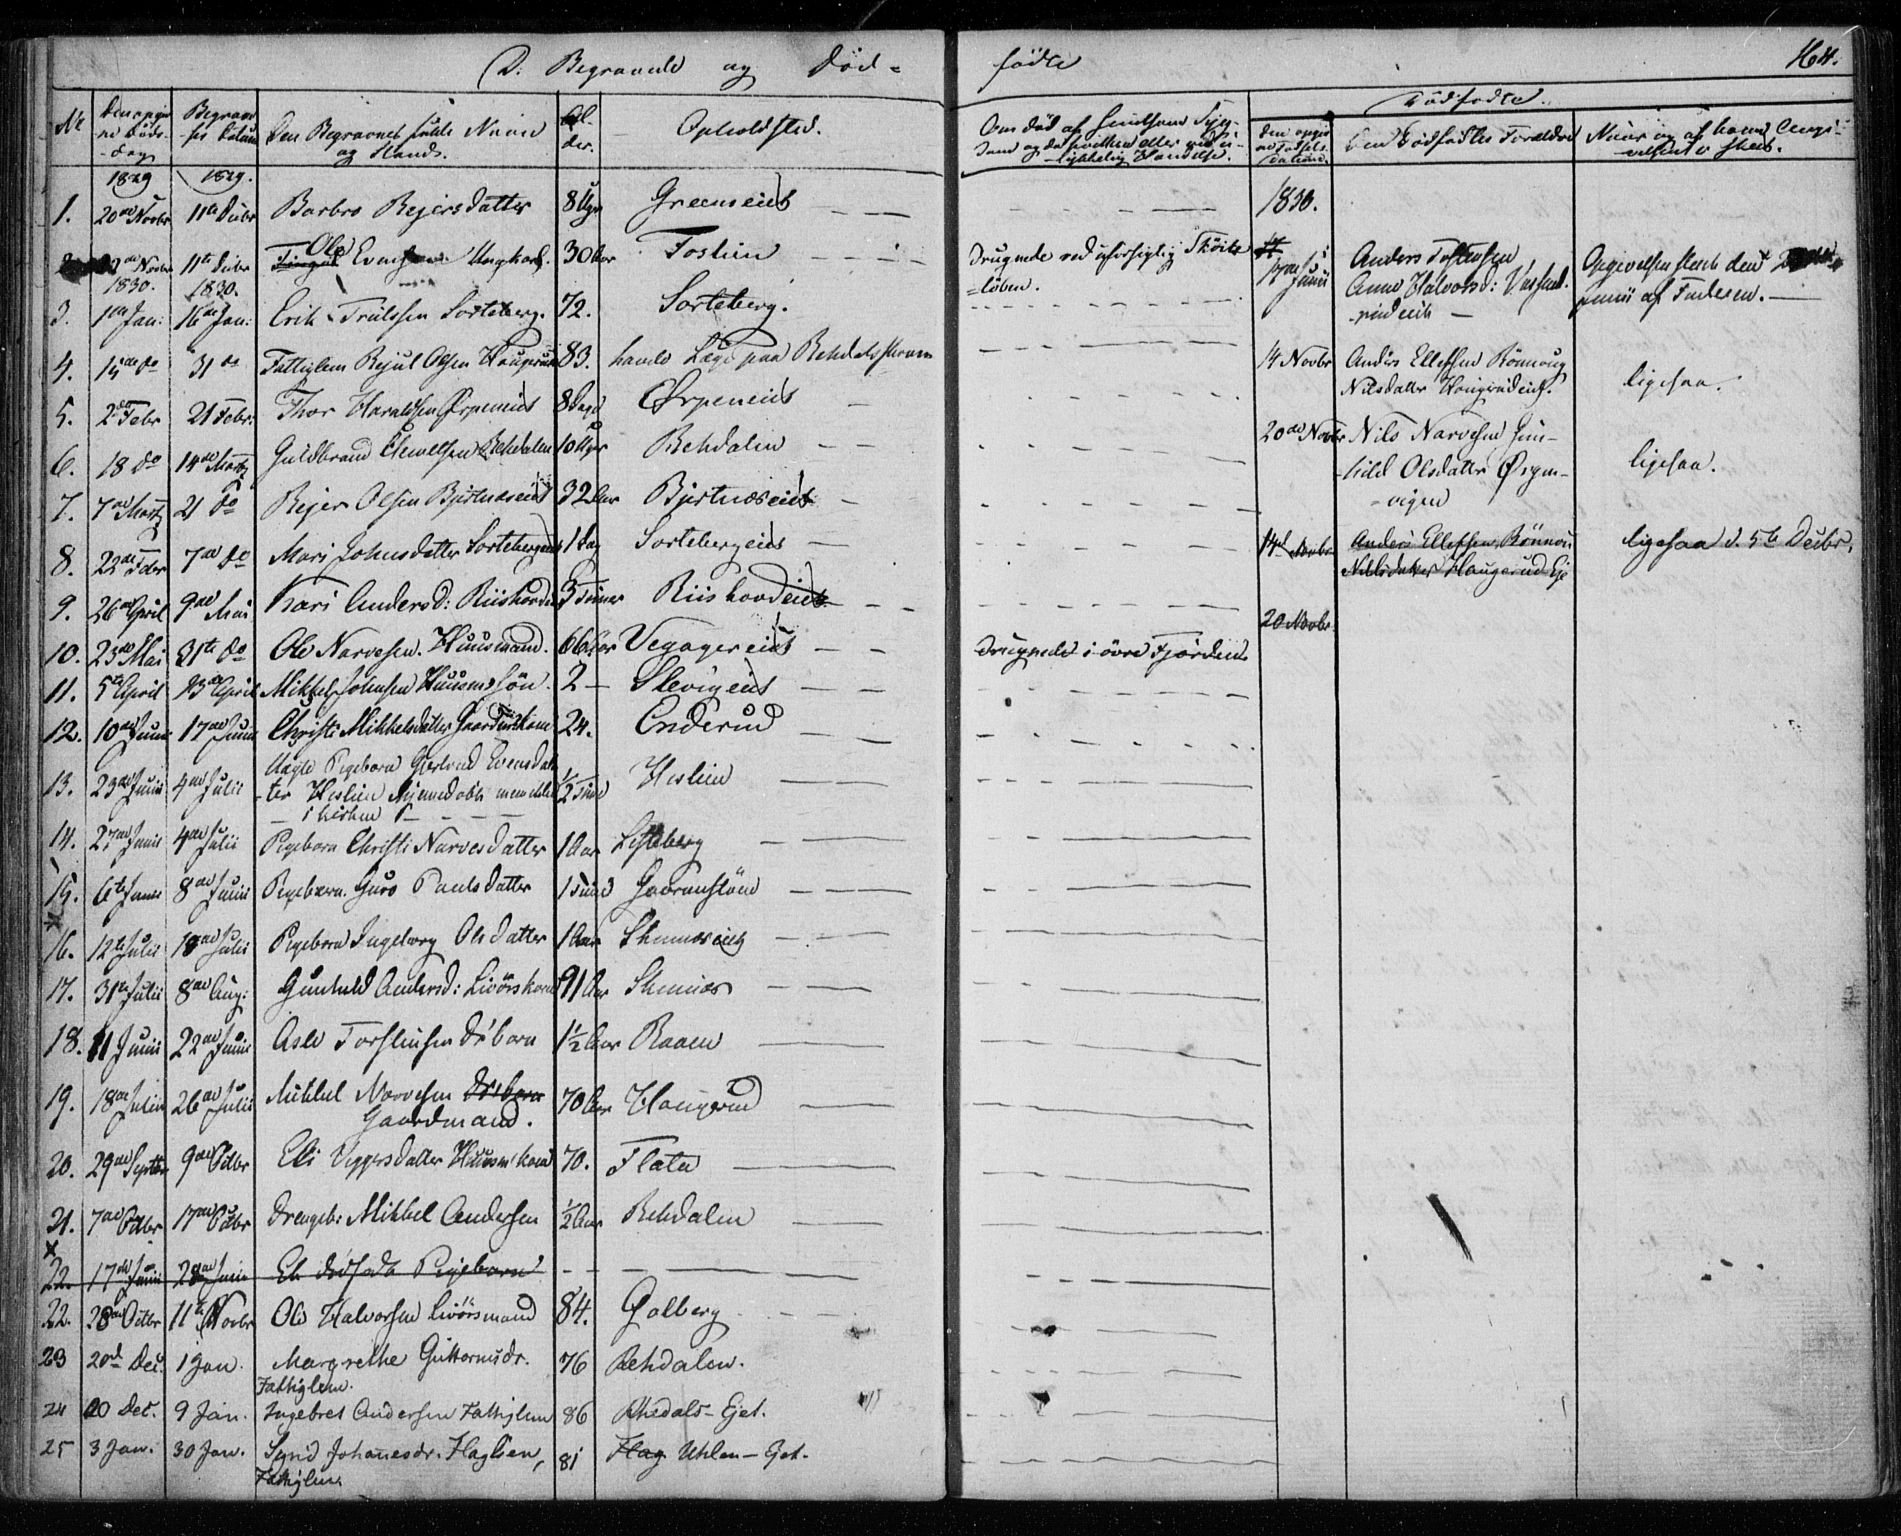 D. Begravede og Død-
fødte
164.
No
Begravel-
ses Datum
Den Begravnes fulde Navn
og Stand.
Al-
der.
Opholdsted.
Om død af smitsom Syg-
dom
-lykkelig Hændelse.
Dødfødte.
Den Dødfødtes Forældre
Naar og af hvem Angi-
velsen er skeet.
1829 1829.
1. 20de Novbr 11te Decbr Barbro Rejersdatter 8 Uger Greenseiet
1830.
2 Novbr 11te Decbr Ole Evensen Ungkarl. 30 Aar Toslien
Drugnede ved uforsigtig Skøite-
løben.
17de Junii
Anders Tostensen
Anne Halvorsd:
Angivelsen skeede den
Junii af Faderen.
1830. 1830.
3. 1ste Jan: 16de Jan: Erik Trulssen Sorteberg. 72. Sorteberg.
4. 15de do 31 do Fattiglem Olsen Haugerud 83. havde Læge paa
14 Novbr Anders Ellefsen Rønnoug
Nilsdatter Haugerudeiet.
ligesaa.
5. 2den Febr 21 Febr: Thor Haraldsen Ørpeneiet 8 Dage Ørpeneiet
6. 18 do 14de Martz Guldbrand Rehdalen 10 Uger Rehdalen
20de Novbr Nils Narvesen Gun-
hild Olsdatter Ørgen-
vigen
ligesaa.
7. 7de Martz 21 do Rejer Olsen Bjertnæseiet 32 Aar Bjertnæseiet
8. 22de Febr 7de do Mari Johnsdatter Sortebergeiet 1 Dag Sortebergeiet
14de Novbr Anders Ellefsen, Rønnou
Nilsdatter Haugerud Eje
ligesaa d. 5te Decbr.
9. 26de April 9de Mai Kari Andersd: Riishovdeiet 3 Timer Riishovdeiet
20 Novbr.
10. 23de Mai 31te do Ole Narvesen Huusmand. 66 Aar Vegagereiet
Drugnede i øvre Fjorden.
11. 5te April 13de April Mikkel Johnsen Huusms søn. 2 Slevigeiet
12. 10de Junii 17de Junii Christi Mikkelsdatter 24. Enderud
13. 23de Junii 4de Julii Uægte Pigebarn Gjertrud Evensdat-
ter Heslien Hjemmedøbt
i kirken
1/2 Time Heslien
14. 27de Junii 4de Julii Pigebarn Christi Narvesdatter 1 Aar Lisleberg
15. 6te Junii 8de Junii Pigebarn. Guro Paulsdatter 1
16. 12te Julii 18de Julii Pigebarn Ingeborg Olsdatter 1 Aar Skinnæseiet
17. 31te Julii 8de Aug: Gunhild Andersd: Livørskone 91 Aar Skinnæs
18. 11 Junii 22de Junii Asle Torstensen Drbarn 1 1/2 Aar Raaen
19. 18de Julii 26de Julii Mikkel Narvesen Drbarn
Gaardmand.
70 Aar Haugerud
20. 29de Septbr 9de Octbr Eli Viggersdatter Huusmkone 70. Flata
21. 7de Octbr 17de Octbr Drengeb: Mikkel Andersen 1/2 Aar Rehdalen
22. 17de Junii 28de Junii Et dødfødt Pigebarn
22. 28de Octbr 11te Novbr Ole Halvorsen Livørsmand 84. Golberg
23 20de Dec. 1 Jan. Margrethe Guttormsdr.
Fattiglem.
76 Rehdalen.
24 20 Dec. 9 Jan. Ingebret Andersen Fattiglem 86 Rhedals-Ejet.
25 3 Jan. 30 Jan. Synd Johanesdr. Haglien,
Fattiglem.
81 Flag Uhlen-Ejet.